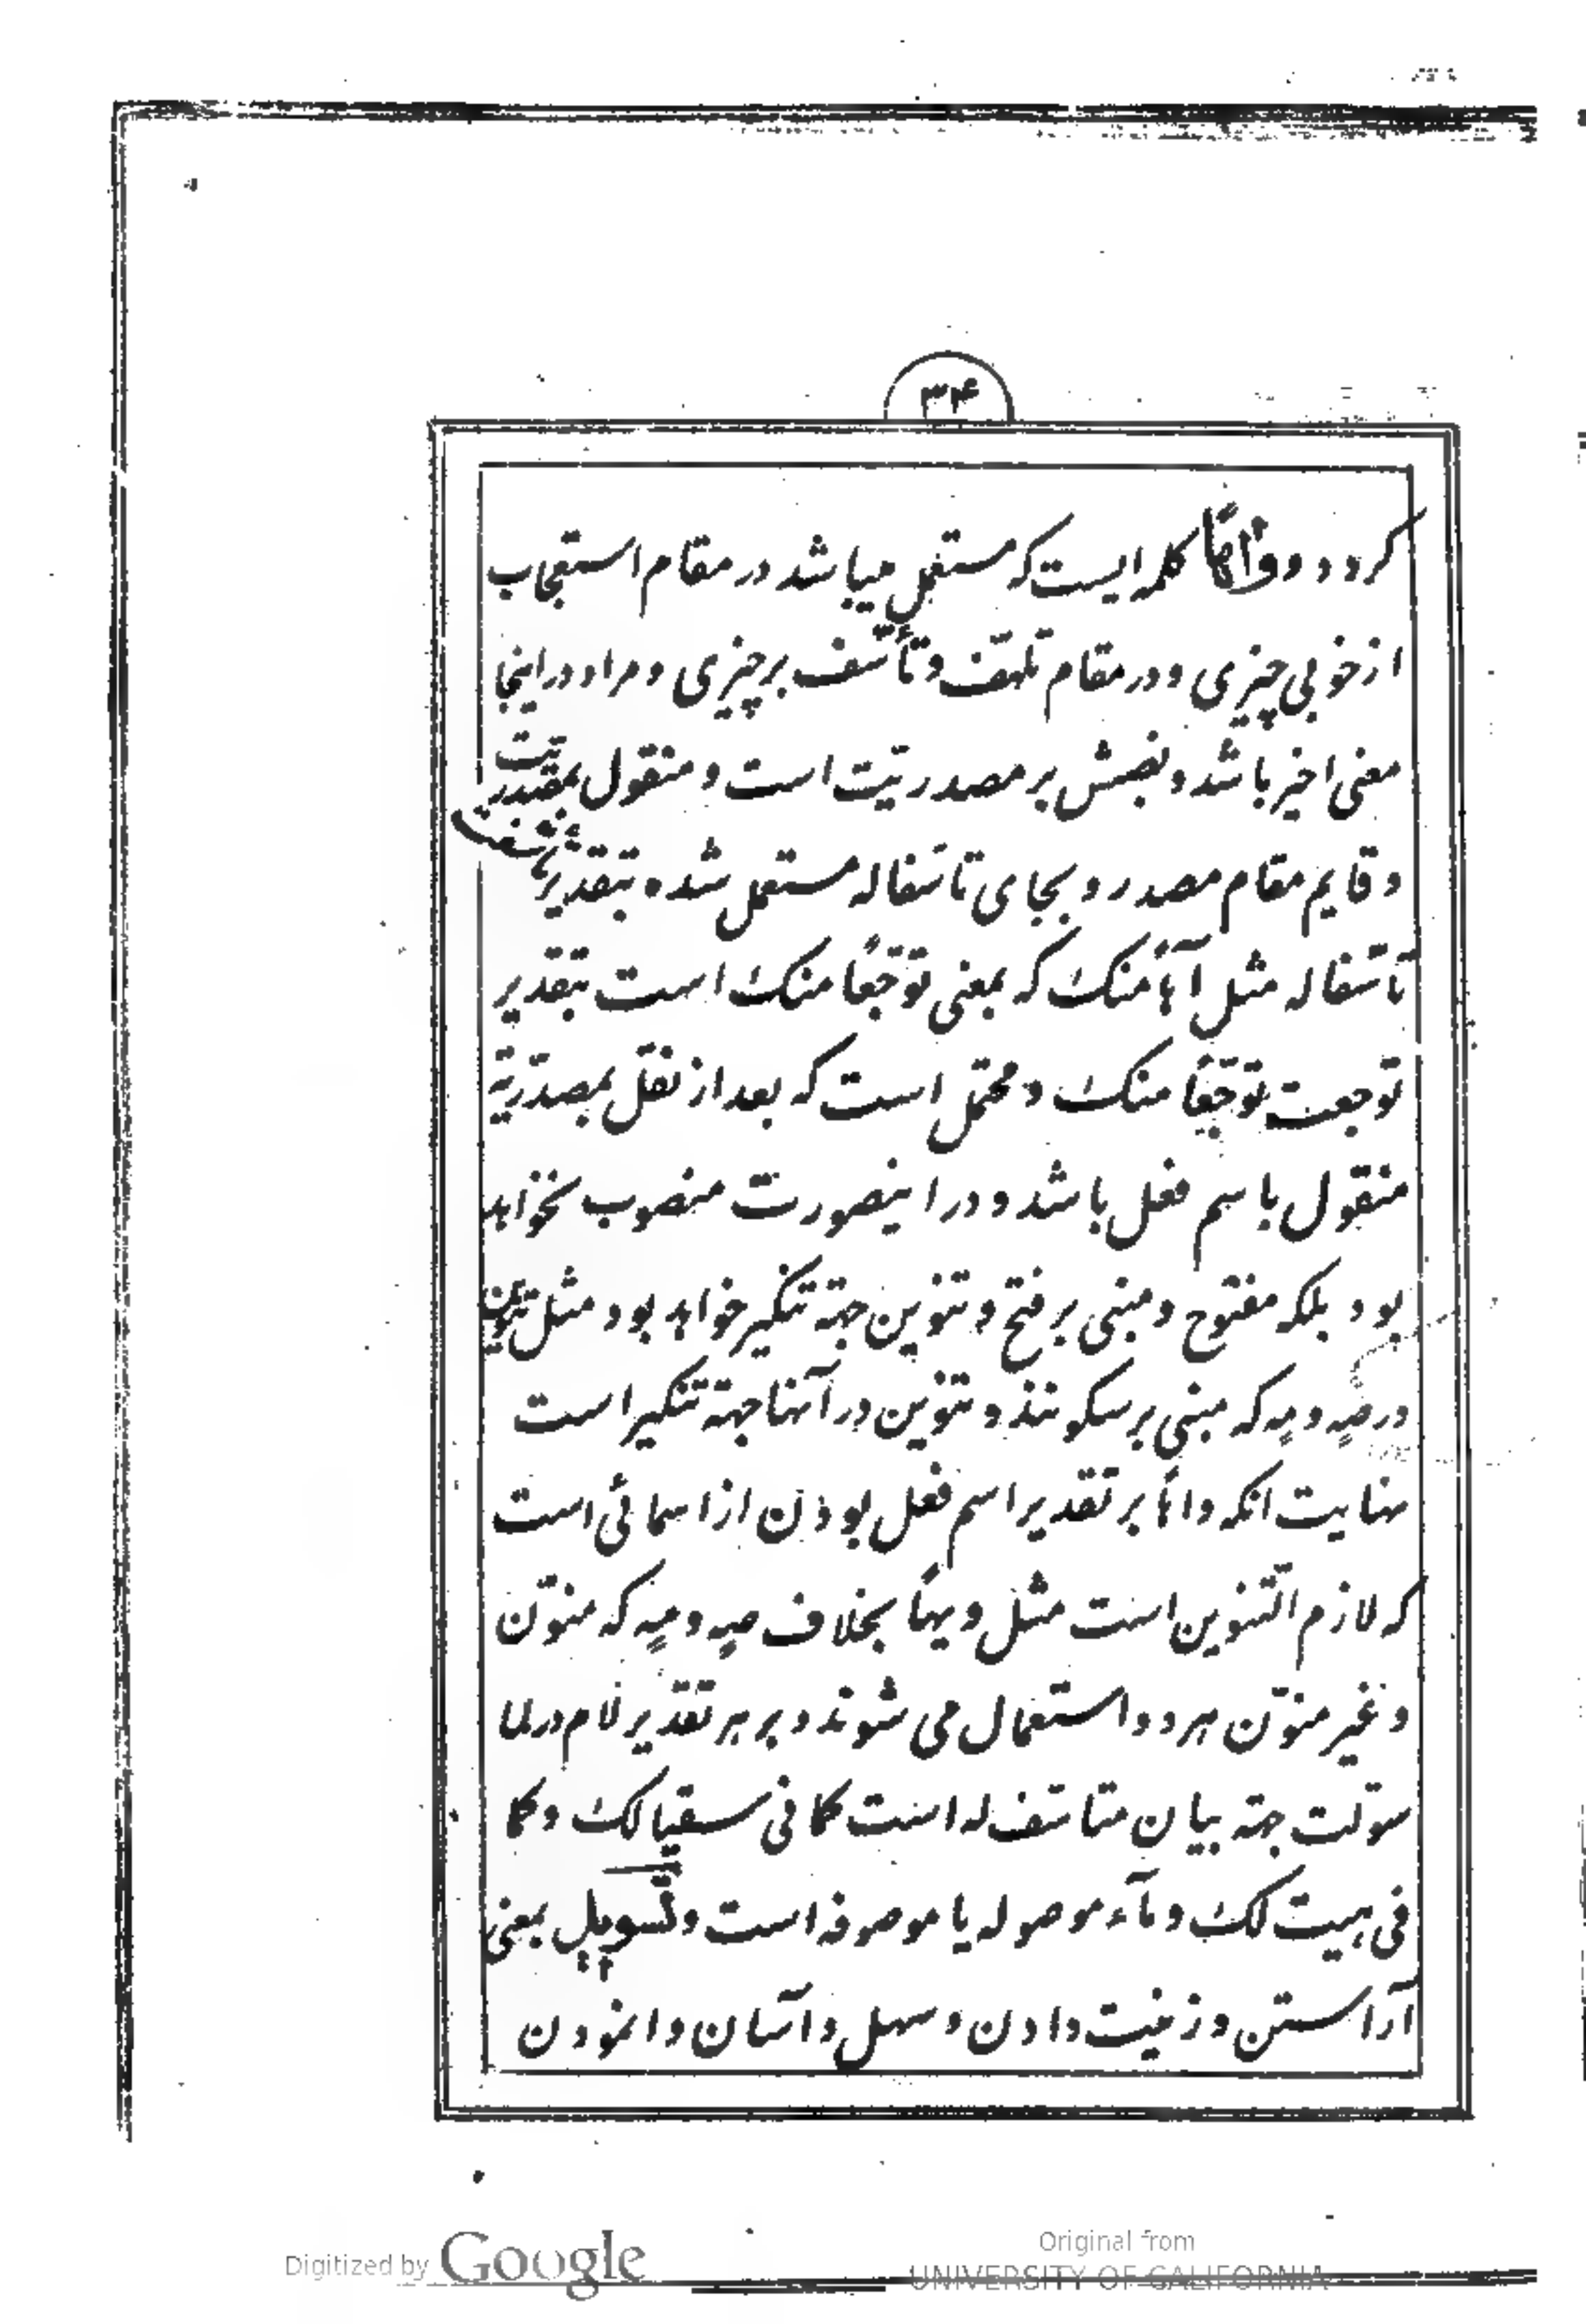 ۳۴
كردد و واهًا كلمه ايست كه مستعمل ميباشد در مقام استعجاب
از خوبى چيزى و در مقام تلهّف و تأسّف بر چيزى و مراد در اينجا
معنى اخير باشد و نصبش بر مصدريّت است و منقول بمصدريّت
و قايم مقام مصدر و بجاى تاسّفا له مستعمل شده بتقدير تأسّفت
تأسّفا له مثل آهاً منك كه بمعنى توجّعًا منك است بتقدير
توجعت توجّعًا منك و محتمل است كه بعد از نقل بمصدريّة
منقول باسم فعل باشد و در اينصورت منصوب نخواهد
بود بلكه مفتوح و مبنى بر فتح و تنوين جهة تنكير خواهد بود مثل تنوين
در صهٍ و مهٍ كه مبنى بر سكونند و تنوين در آنها جهة تنكير است
نهايت انكه واهاً بر تقدير اسم فعل بودن از اسمائى است
كه لازم التّنوين است مثل ويهًا بخلاف صهٍ و مهٍ كه منوّن
و غير منوّن هر دو استعمال مى شوند و بر هر تقدير لام در لما
سوّلت جهة بيان متاسّف له است كما فى سقيا لك و كما
فى هيت لك و مآء موصوله يا موصوفه است و تسويل بمعنى
آراستن و زينت دادن و سهل و آسان وانمودن
Digitized by Google
Original from
UNIVERSITY OF CALIFORNIA